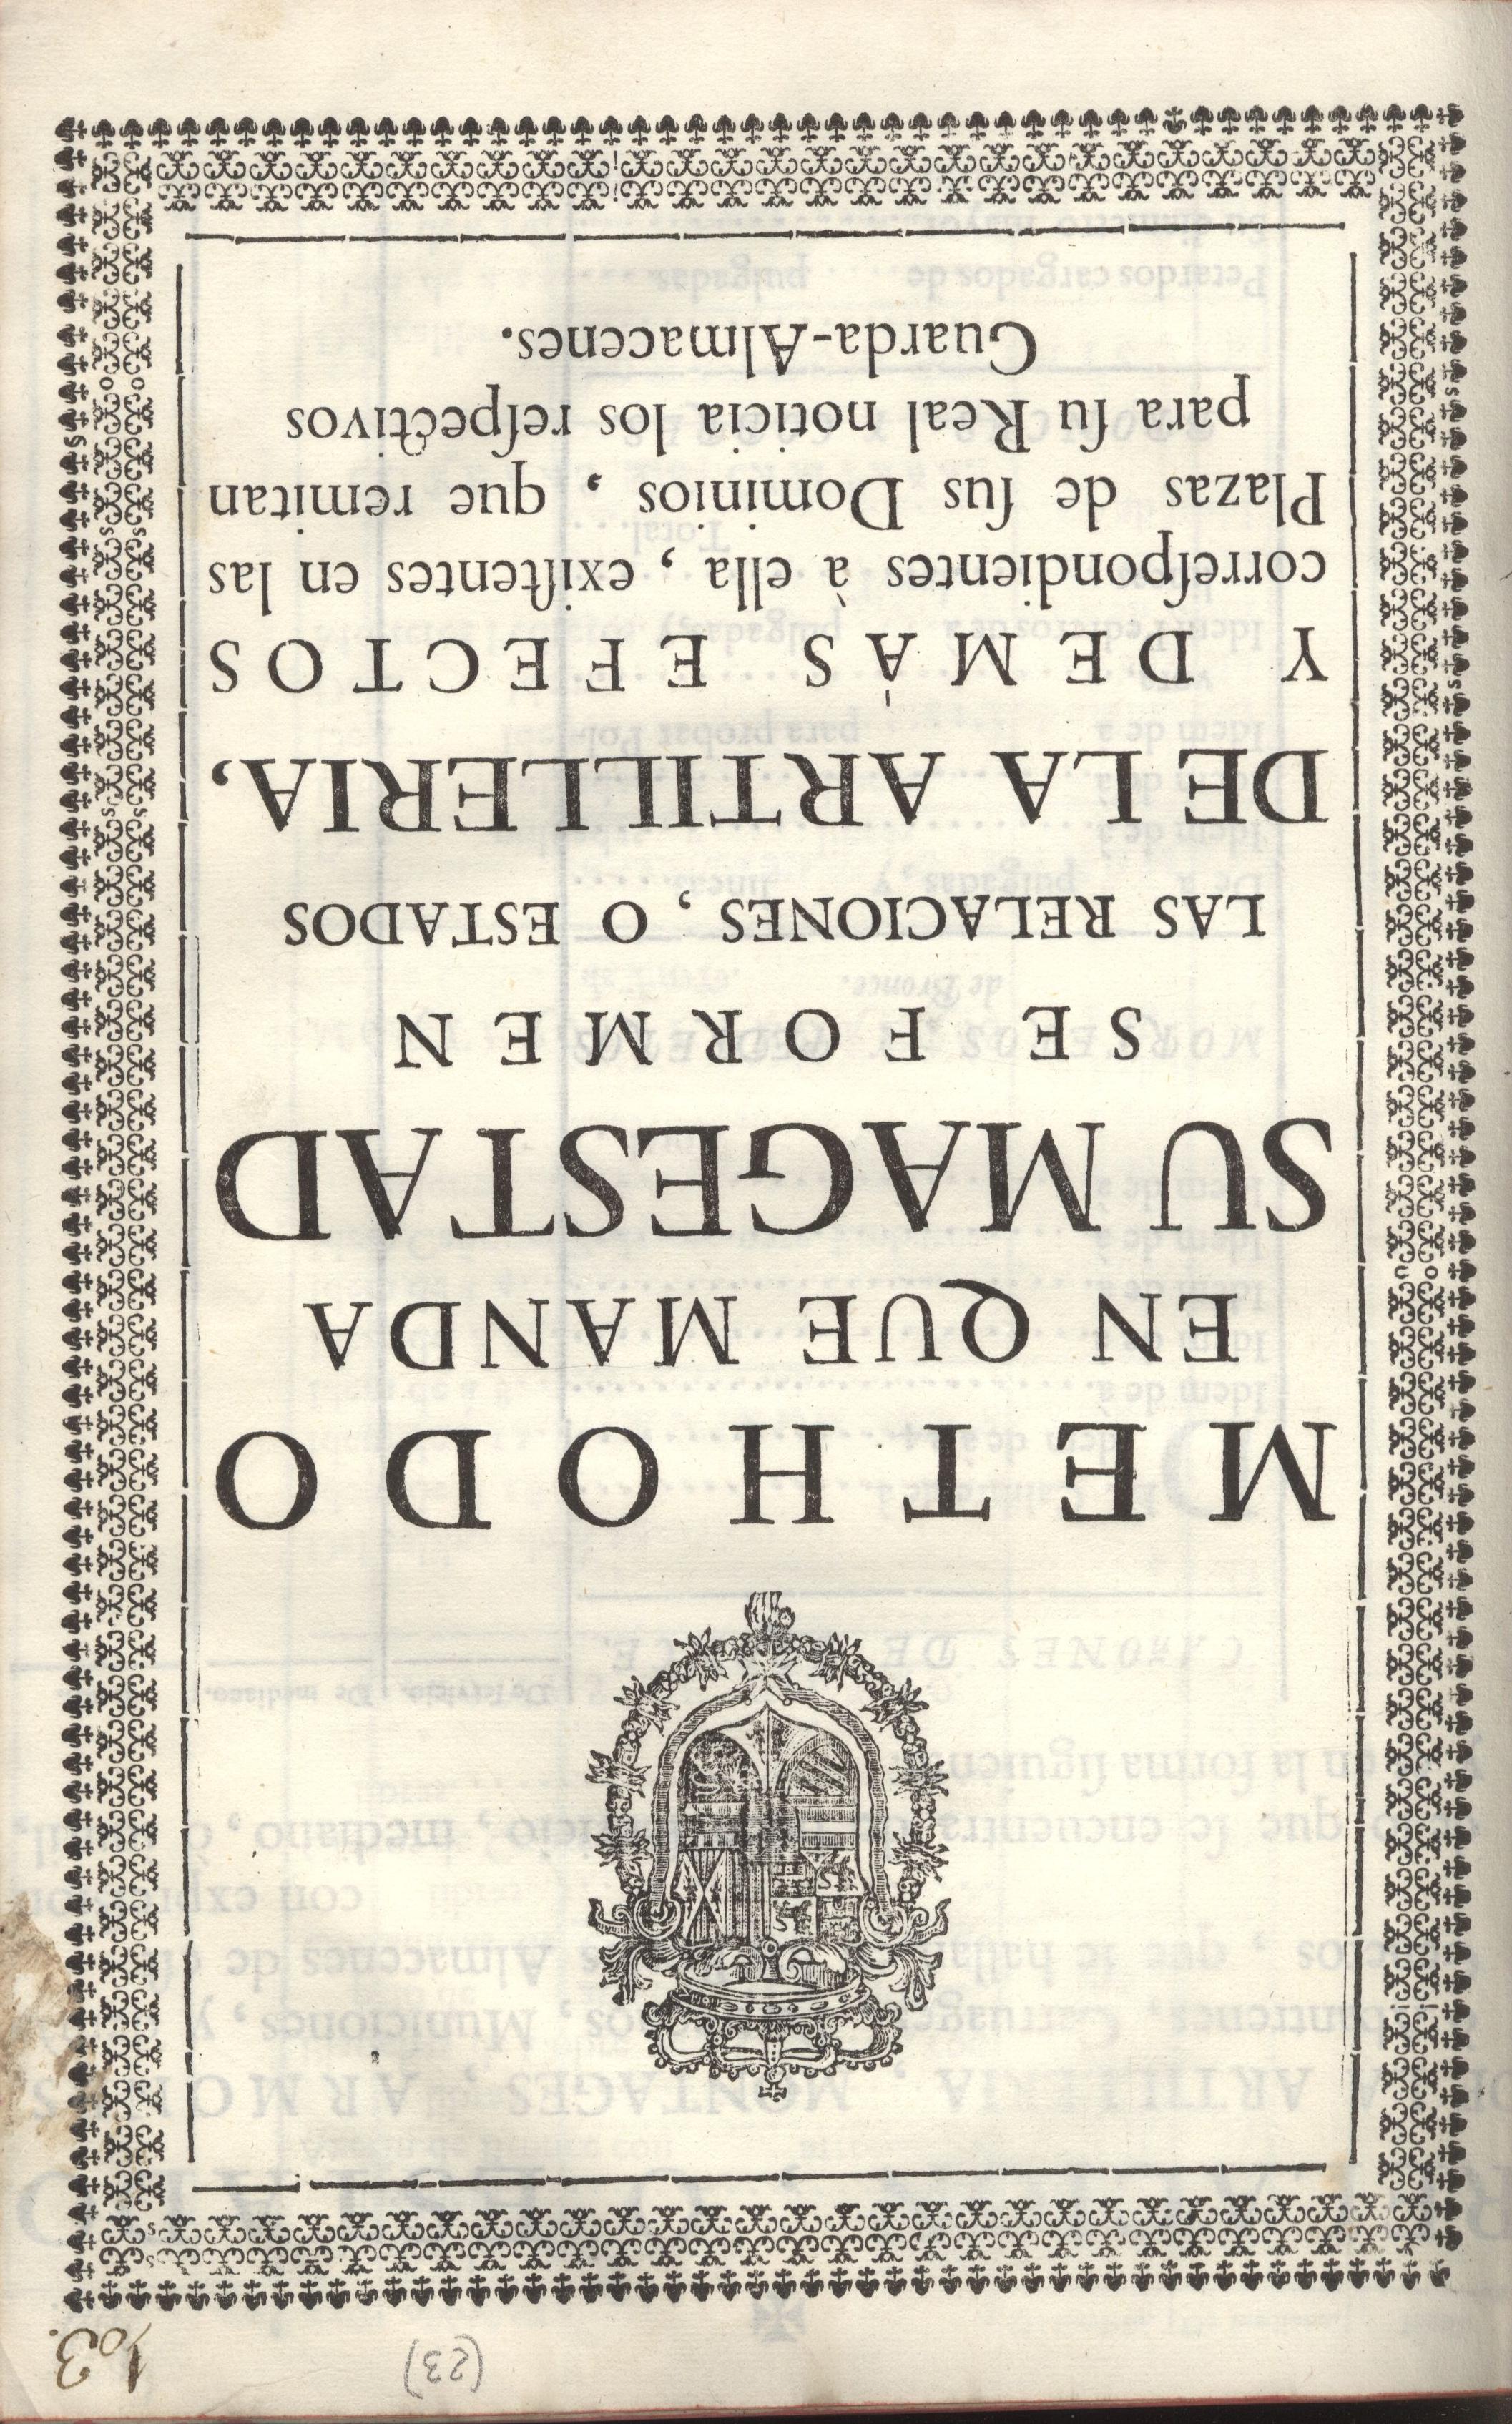 (23)
103.
METHODO
EN QUE MANDA
SU MAGESTAD
SE FORMEN
LAS RELACIONES, O ESTADOS
DE LA ARTILLERIA,
Y DEMÀS EFECTOS
correſpondientes à ella, exiſtentes en las
Plazas de ſus Dominios, que remitan
para ſu Real noticia los reſpectivos
Guarda-Almacenes.